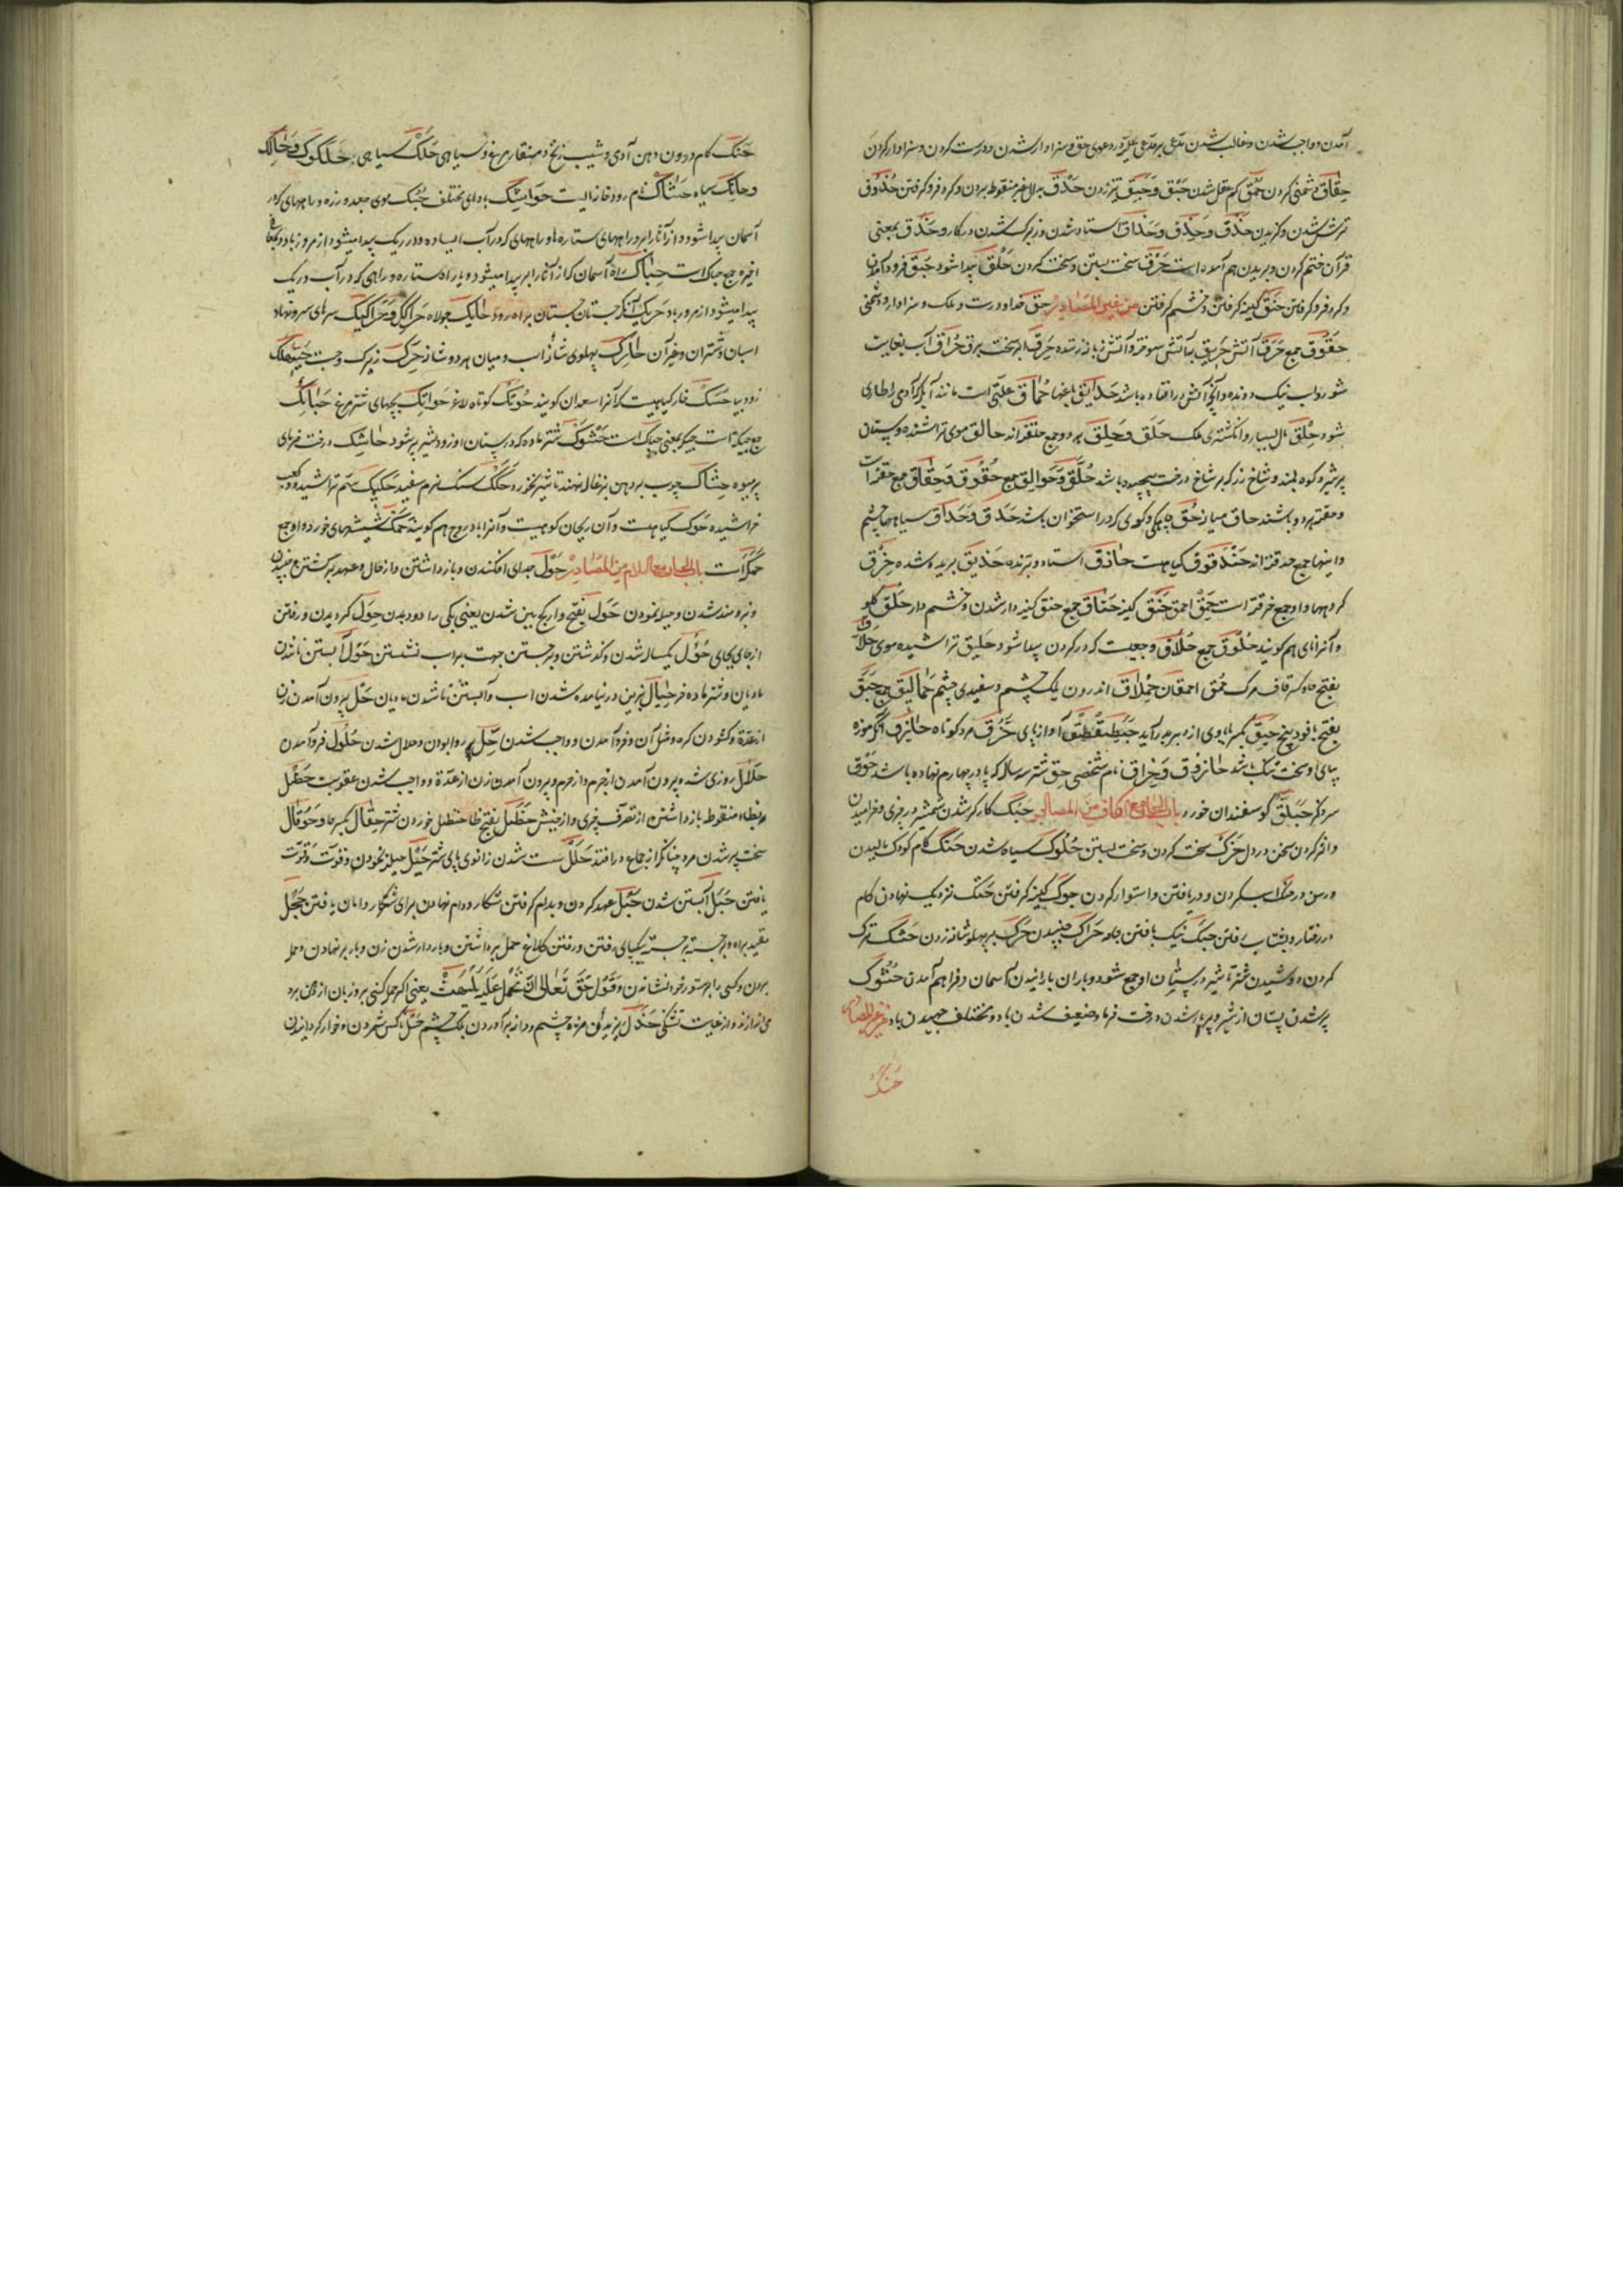 آمدن و واجب شدن و غالب شدن مدعی بر مدعی علیه در دعوی حق و سزاوار شدن و درست کردن و سزاوار کردن
حِقاق دشمنی کردن حُمق کم عقل شدن حَبْق وَحَبِق تیز زدن حَدْق بدال غیر منقوط بردن و کرد فرو کرفتن حُذوق
ترش شدن و کزیدن حَذق وَحِذق وَحَذاق استاد شدن و زیرک شدن در کار و حَذق بمعنی
قرآن ختم کردن و بریدن هم آمده است حَزق سخت بستن و سخت کردن حَلْق پیدا شود حَبَق فرود آمدن
و کرد فرو کرفتن حَنَق کینه کرفتن و خشم کرفتن من غیر المصادر حق خدا و درست و ملک و سزاوار و
حقوق جمع حَرَق آتش حَریق آتش سوخته و آتش زبانه زننده حَرِق ابر سخت برق حُراق آب بغایت
شور و اسب نیک دونده و آنچه آتش درو افتاده باشد حَدایق باغها حُماق علتی است مانند آبله که آدمی را طاری
شود حِلق مال بسیار و انکشتری ملک حَلَق وَحِلَق هر دو جمع حلقه‌اند حالق موی تراشنده و پستان
پر شیر و کوه بلند و شاخ رز که بر شاخ درخت پیچیده باشد حُلَّق وَحَوالق جمع حُقوق وَحِقاق جمع حقه است
و حقه هر دو باشند حاق میانه حُق چابکی و کوی که در استخوان باشد حَدَق وَحِداق سیاهیها چشم
و اینها جمع حدقه‌اند حَنْدَقوق کیاهیست حاذق استاد و برنده حَذیق بریده شده حِزَق
کروهها و او جمع حزقه است حَمِق احمق حَنِق کینه حِناق جمع حنق کینه دار شدن و خشم دار حَلْق کلو
و آنرا نای هم کویند حُلوق جمع حُلاق وجعیست که در کردن پیدا شود حَلیق تراشیده موی حَلاق
بفتح حا و کسر قاف مرک حُمق احمقان حِملاق اندرون پلک چشم و سفیدی چشم حَمالیق جمع حَبَق
بفتح با پودینه حَبِق بکسر با بادی از دبر بدر آید حَبَطِقطِق آواز پای حُزُق مرد کوتاه حازق آنکه موزه
پای او سخت تنک باشد حازوق وَحِزاق نام شخصی حِق شتر سه ساله که پا در چهارم نهاده باشد حَوْق
سر ذکر حَبَلّق کوسفندان خورد باب الحاء مع الکاف من المصادر حَبْک کارکر شدن شمشیر در چیزی و خرامیدن
و اثر کردن سخن در دل حَزک سخت کردن و سخت بستن حُلوک سیاه شدن حَنْک کام کودک مالیدن
و رسن در حنک اسب کردن و دریافتن و استوار کردن حَوک کینه کرفتن حَتْک نزدیک نهادن کام
در رفتار و بشتاب رفتن حَبک نیک بافتن جامه حَراک جنبیدن حَرک بر پهلو شانه زدن حَشک ترک
کردن دوشیدن شتر تا شیر در پستان او جمع شود و باران بارانیدن آسمان و فراهم آمدن حُشوک
پر شدن پستان از شیر و پر بار شدن درخت خرما و ضعیف شدن باد و مختلف جهیدن باد من غیر المصادر
حنک
حَنَک کام درون دهن آدمی و شیب زنخ و منقار مرغ و سیاهی حَلَک سیاهی حَلَکوک وَحالک
وحانک سیاه حَشاک نام رودخانه ایست حَواشک بادهای مختلف حُبُک موی جعد و زره و راههای که در
آسمان پیدا شود و از آثار ابر و راههای ستاره‌ها و راههای که در آب ایستاده و در ریک پیدا میشود از مرور باد و
اخیره جمع حباک است حِباک راه آسمان که از آثار ابر پیدا میشود و یا راه ستاره و راهی که در آب و ریک
پیدا میشود از مرور باد حَریک آنکه جستان جستان براه رود حائک جولاه حَراکک وَحَراکیک سرهای سرو نهاد
اسبان و شتران و غیر آن حارک پهلوی شانه اسب و میان هر دو شانه حَرِک زیرک و چست حَیَّهَلَک
زود بیا حَسَک خار کیاهیست که آنرا سعدان کویند حَوْتَک کوتاه لاغر حَواتک بچهای شتر مرغ حَبائک
جمع حبیکه است حبیکه بمعنی حباک است حَشوک شتر ماده که در پستان او زود شیر پر شود حاشِک درخت خرمای
پر میوه حِشاک چوب بر دهن بزغاله نهند تا شیر نخورد حَکَک سنک نرم سفید حَکیک سم تراشیده و کعب
خراشیده حَوَک کیاهیست و آن ریحان کوهیست و آنرا بادروج هم کویند حَمَک شپشهای خورد و او جمع
حَمَکَه است باب الحاء مع اللام من المصادر حَوْل جدای افکندن و باز داشتن و از حال و عهد برکشتن و جنبیدن
و نیرومند شدن و حیله نمودن حَوَل بفتح واو کج بین شدن یعنی یکی را دو دیدن حِوَل کردیدن و رفتن
از جای بجای حُؤُل یکساله شدن و کذشتن و برجستن جهت بر اسب نشستن حَوَل آبستن نا شدن
مادیان و شتر ماده خر حِیال نیز این در نیامده شدن اسب و آبستن نا شدن مادیان حَلّ بیرون آمدن زن
از عدّه و کشودن کره و مثل آن و فرود آمدن و واجب شدن حِلّ روا بودن و حلال شدن حُلول فرود آمدن
حَلال روزی شده بیرون آمدن از جرم و از حرم و بیرون آمدن زن از عدّه و واجب شدن عقوبت حَظْل
بظاء منقوطه باز داشتن از تصرف چیزی و از جنبش حَظَل بفتح ظا حنظل خوردن شتر حِیقال بکسر حا و حَوقال
سخت پیر شدن مرد چنانکه از جماع در افتد حَلَل سست شدن زانوی پای شتر حَیْل حیله نمودن و قوت و قوّت
یافتن حَبَل آبستن شدن حَبْل عهد کردن و بدام کرفتن شکار و دام نهادن برای شکار و امان یافتن حَجْل
مقید براه و برجسته برجسته بیکپای رفتن و رفتن کلاغ حمل برداشتن و باردار شدن زن و بار بر نهادن و حمل
بردن و کسی را بر ستور خود نشاندن وَقَوْل حَقّ تَعالی اِنْ تَحْمِلْ عَلَیْهِ یَلْهَثْ یعنی اکر حمله کنی برو زبان از دهن برد
می‌اندازد و از غایت تشنکی حَذَل ریزیدن مژه چشم و دانه برآوردن پلک چشم حَثْل ناکس شمردن و خوار کردانیدن